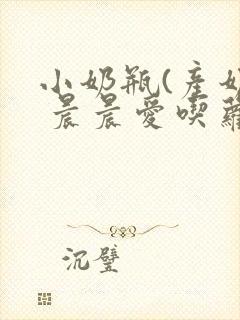 小奶瓶(產奶
晨晨愛喫蘿
沉璧